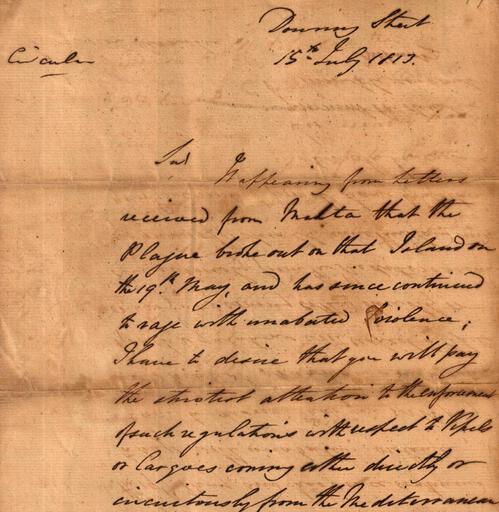 Downing Street
15th July 1813.
Circular
Sir
It appearing from Letters
received from Malta that the
Plague broke out on that Island on
the 19th May, and has since continued
to rage with unabated violence;
I have to desire that you will pay
the strictest attention to the enforcement
of such regulations with respect to Vessels
or Cargoes coming either directly or
circuitously from the Mediterranean